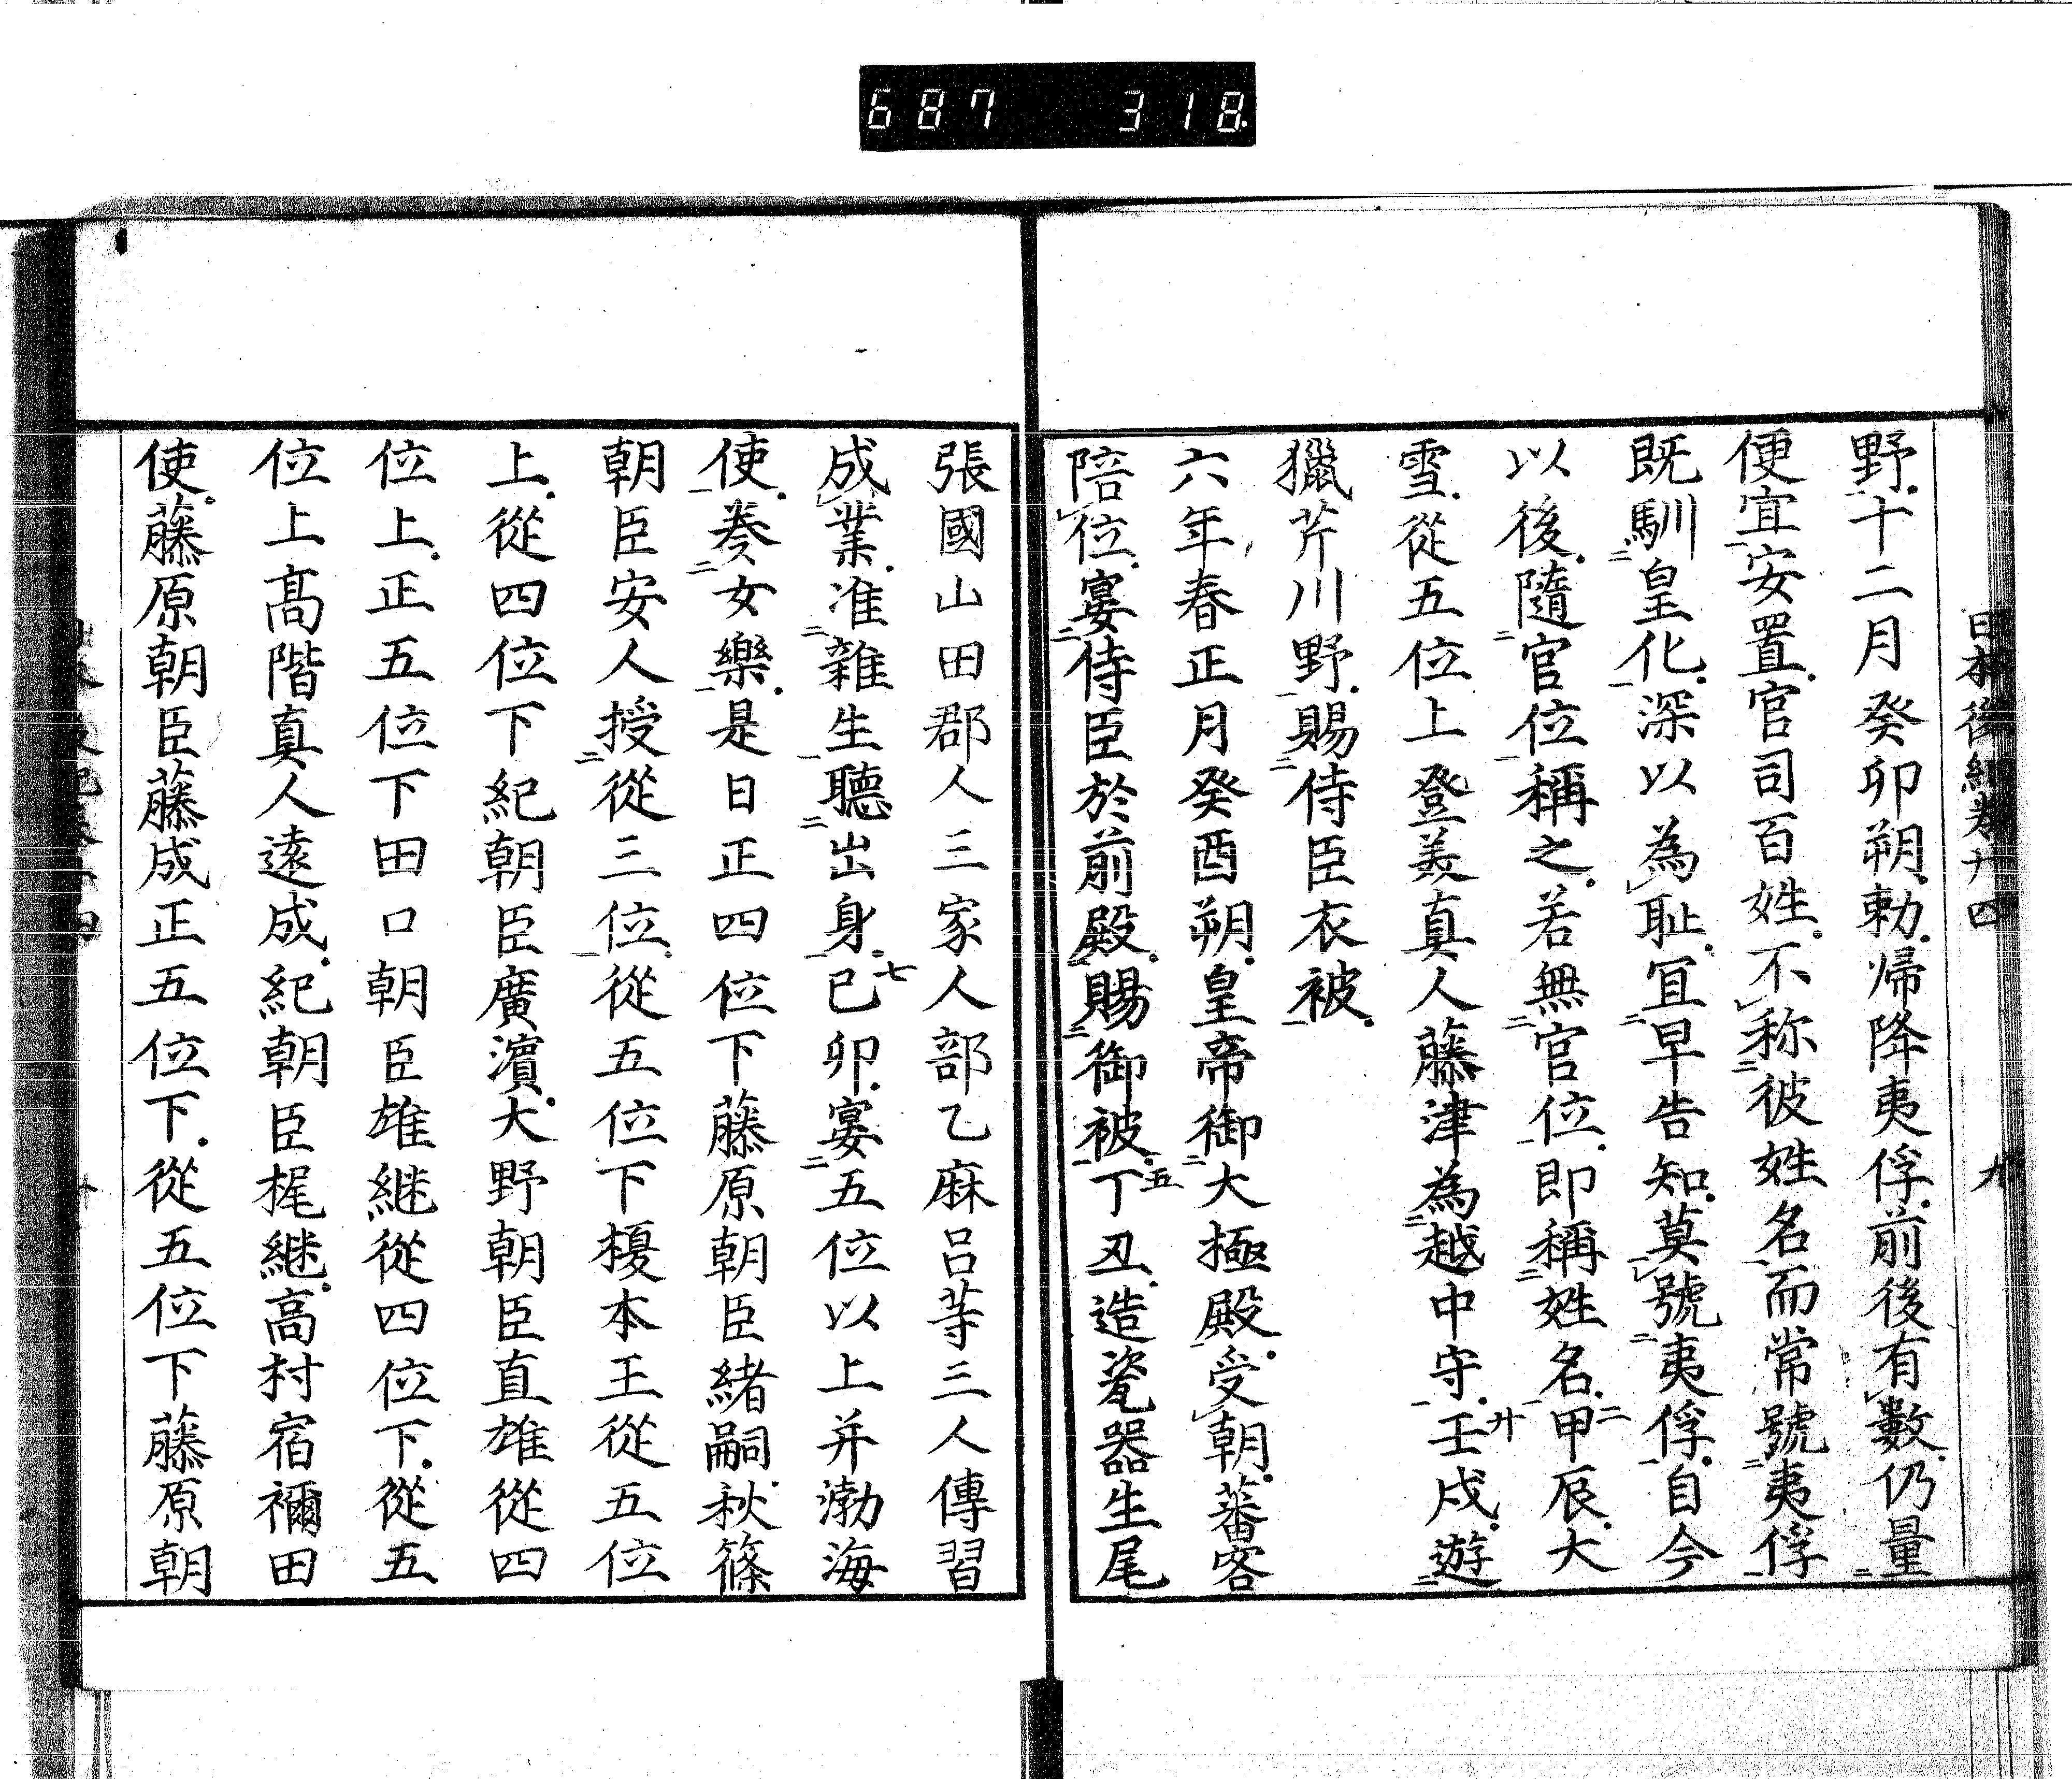 687 318
日本後紀卷廿四 九
野十二月癸卯朔勅帰降夷俘前後有數仍量
便宜安置官司百姓不称彼姓名而常號夷俘
既馴皇化深以為耻冝早告知莫號夷俘自今
以後隨官位稱之若無官位即稱姓名二甲辰大
雪從五位上登美真人藤津為越中守廾壬戌遊
獵芹川野賜侍臣衣被
六年春正月癸酉朔皇帝御大極殿受朝蕃客
陪位宴侍臣於前殿賜御被五丁丑造瓷器生尾
張國山田郡人三家人部乙麻呂等三人傳習
成業准雜生聽出身七己卯宴五位以上并渤海
使奏女樂是日正四位下藤原朝臣緒嗣秋篠
朝臣安人授從三位從五位下榎本王從五位
上從四位下紀朝臣廣濱大野朝臣直雄從四
位上正五位下田口朝臣雄継從四位下從五
位上髙階真人遠成紀朝臣梶継高村宿禰田
使藤原朝臣藤成正五位下從五位下藤原朝